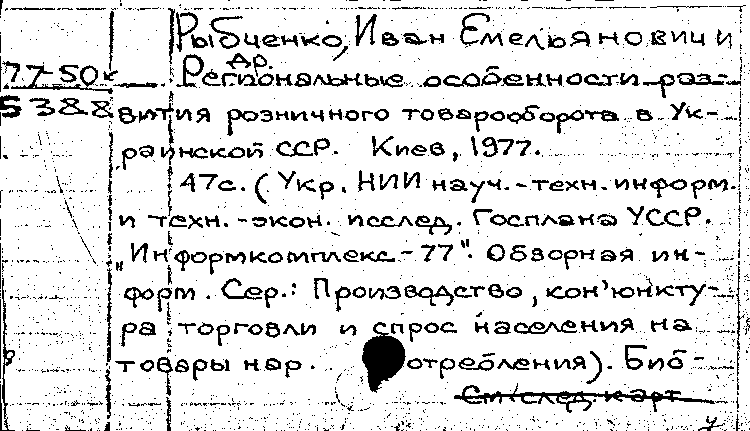 Рыбченко, Иван Емельянович и
др.
77-50
5388
Региональные особенности раз-
вития розничного товарооборота в Ук-
раинской ССР. Киев, 1977.
47с. (Укр. НИИ науч.-техн. информ.
и техн.-экон. исслед. Госплана УССР.
"Информкомплекс-77". Обзорная ин-
форм. Сер.: Производство, кон'юнкту-
ра торговли и спрос населения на
товары нар. отребления). Биб-
См след карт